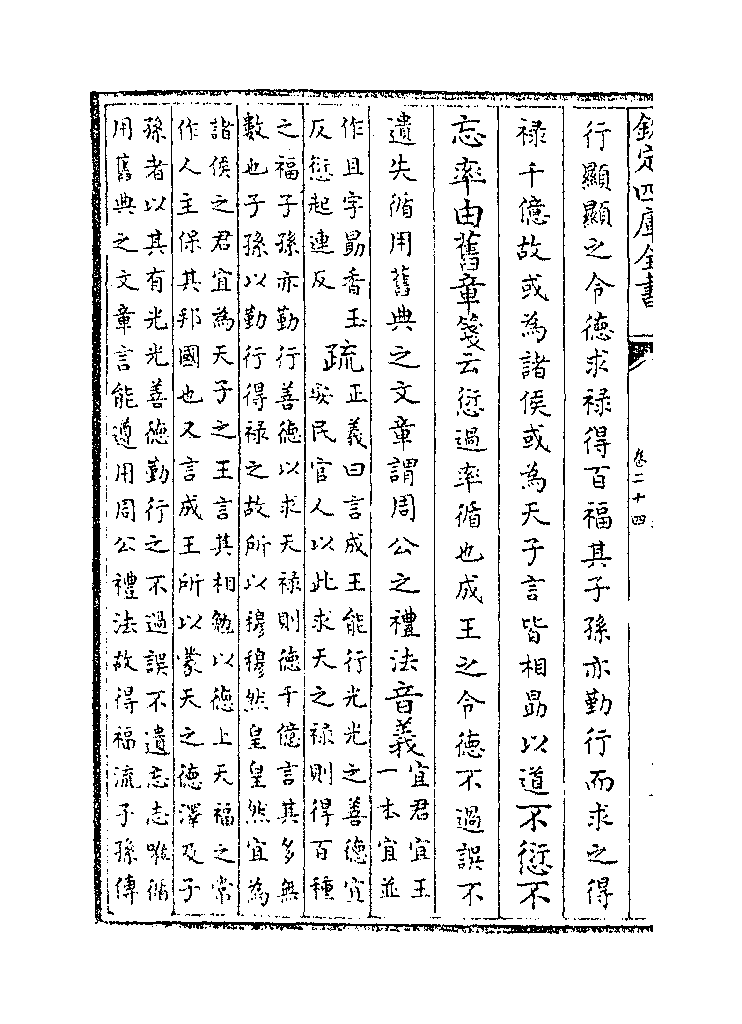 欽定四庫全書 卷二十四
行顯顯之令德求禄得百福其子孫亦勤行而求之得
禄千億故或為諸侯或為天子言皆相勗以道不愆不
忘率由舊章箋云愆過率循也成王之令德不過誤不
遺失循用舊典之文章謂周公之禮法音義宜君宜王
一本宜並
作且字勗香玉
反愆起連反
疏正義曰言成王能行光光之善德宜
安民官人以此求天之禄則得百種
之福子孫亦勤行善德以求天禄則德千億言其多無
數也子孫以勤行得禄之故所以穆穆然皇皇然宜為
諸侯之君宜為天子之王言其相勉以德上天福之常
作人主保其邦國也又言成王所以蒙天之德澤及子
孫者以其有光光善德勤行之不過誤不遺忘志唯循
用舊典之文章言能遵用周公禮法故得福流子孫傳